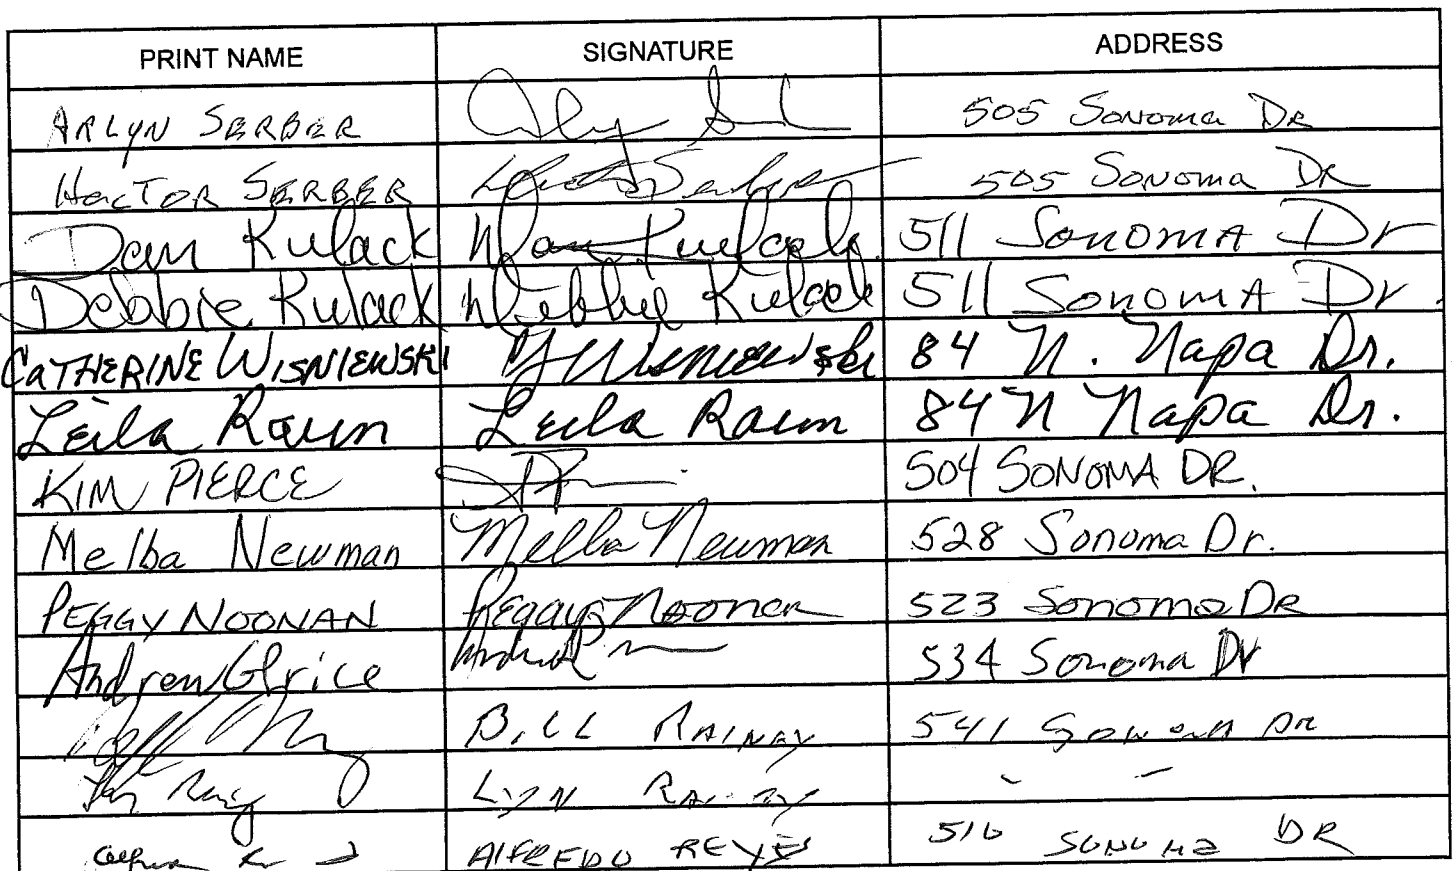 PRINT NAME SIGNATURE ADDRESS
ARLYN SERBER 505 Sonoma DR
HECTOR SERBER Hector Serber 505 Sonoma DR
Dan Kulack Dan Kulack 511 Sonoma Dr
Debbie Kulack Debbie Kulack 511 Sonoma Dr
CATHERINE WISNIEWSKI Wisniewski 84 N. Napa Dr.
Leila Raun Leila Raun 84 N Napa Dr.
KIM PIERCE 504 SONOMA DR.
Melba Newman Melba Newman 528 Sonoma Dr.
PEGGY NOONAN Peggy Noonan 523 Sonoma DR
Andrew Grice 534 Sonoma Dr
BILL RAINEY 541 Sonoma DR
LYN RAINEY
ALFREDO REYES 510 SONOMA DR